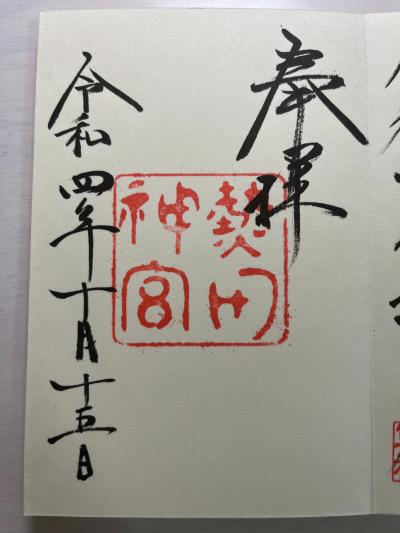 奉拝
熱田
神宮
令和四年十月十五日